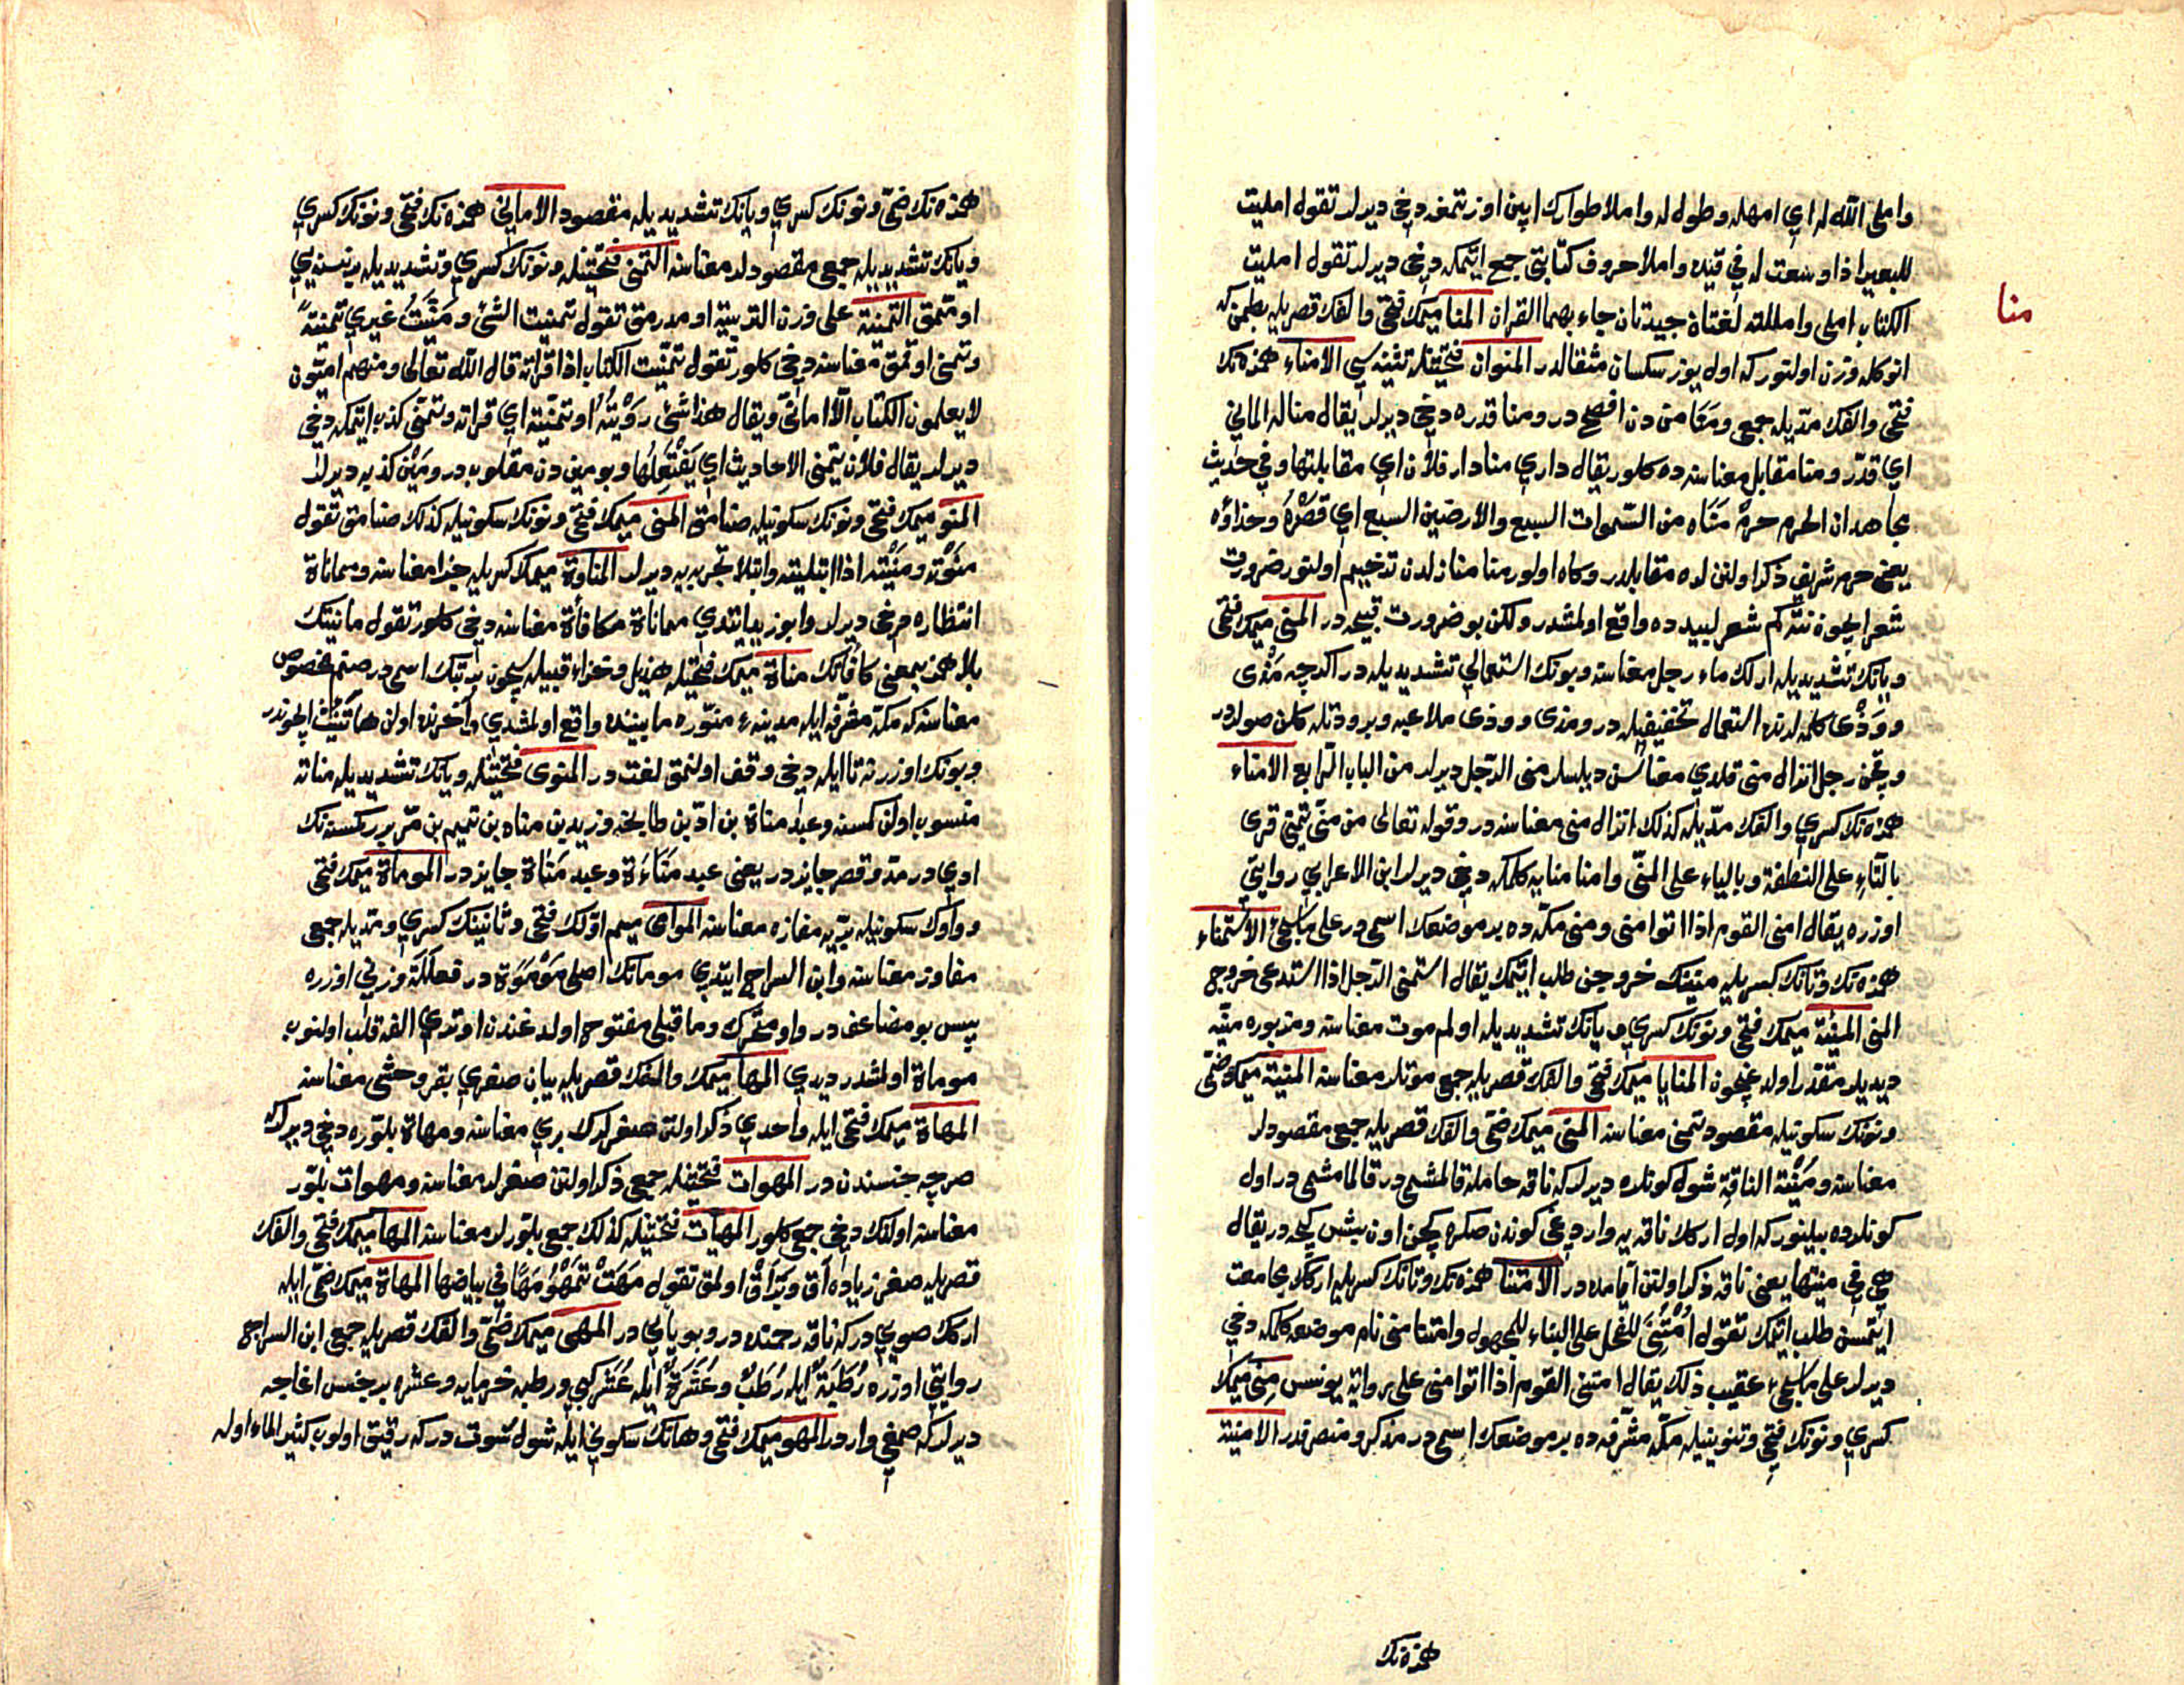 واملى الله له اي امهله وطول له واملا طوارك ايپن اوزتمغه دخي ديرلر تقول امليت
للبعير اذا وسعت له في قيده واملا حروف كتابتي جمع ايتمكه دخي ديرلر تقول امليت
الكتاب املى واملته لغتاة جيدتان جاء بهما القران المنا ميمك فتحي والفك قصريله بطمن كه
انوكله وزن اولنور كه اول يوز سكسان مثقالدر المنوان فتحتينله تثنيه سي الامناء همزه نك
فتحي والفك مديله جمعي ومنا من دن افصح در ومنا قدره دخي ديرلر يقال منا له الماني
اي قدر ومنا مقابل معناسنه ده كلور يقال داري منا دار فلان اي مقابلتها وفي حديث
مجاهد ان الحرم حرم مناه من السموات السبع والارضين السبع اي قصره وحذاؤه
يعني حرم شريف ذكر اولنن لره مقابلدر وكاه اولور منا منازلدن ترخيم اولنور ضرورت
شعر ايچون نتكم شعر لبيدده واقع اولمشدر ولكن بو ضرورت قبيحه در المني ميمك فتحي
ويانك تشديديله ارلك ماء رجل معناسنه وبونك استعمالي تشديديله در اكرچه مذى
وودى كلمه لرنده استعمال تخفيفيله در ومذى وودى ملاعبه وبرودتله كلن صولردر
وقچن رجل انزال منى قلدي معناسن ديلسلر منى الرجل ديرلر من الباب الرابع الامناء
همزه نك كسري والفك مديله كذلك انزال منى معناسنه در وقوله تعالى من منى تمنى قرى
بالتاء على النطفة وبالياء على المنى وامنا منايه كلمكه دخي ديرلر ابن الاعرابي روايتي
اوزره يقال امنى القوم اذا اتوا منى ومنى مكه ده بر موضعك اسمى در على ماسيجئ الاستمناء
همزه نك وتانك كسريله منينك خروجن طلب ايتمك يقال استمنى الرجل اذا استدعى خروج
المنى المنية ميمك فتحي ونونك كسري ويانك تشديديله اولم موت معناسنه ومزبوره منيه
ديديلر مقدر اولدغيچون المنايا ميمك فتحي والفك قصريله جمع موتلر معناسنه المنية ميمك ضمى
ونونك سكونيله مقصود تمنى معناسنه المنى ميمك ضمي والفك قصريله جمعي مقصودلر
معناسنه ومنية الناقة شول كونلره ديرلر كه ناقه حامله قالمشمي در قالمامشمي در اول
كونلرده بيلينور كه اول ار كلا ناقه يه واردوغي كوندن صكره كچن اون بشن كيجه در يقال
هي في منيتها يعني ناقه ذكر اولنن ايامده در الامتنا همزه نك وتانك كسريله اركك مجامعت
ايتمسن طلب ايتمك تقول امتني للفحل على البناء للمجهول وامتنا منى نام موضعه كلمكه دخي
ديرلر على ماسيجيء عقيب ذلك يقال امتنى القوم اذا اتوا منى على رواية يونس منى ميمك
كسري ونونك فتحي وتنوينيله مكه مشرفه ده بر موضعك اسمى در مذكر ومنصرفدر الامنية
همزه نك
منا
همزه نك ضمي ونونك كسري ويانك تشديديله مقصود الاماني همزه نك فتحي ونونك كسري
ويانك تشديديله جمعي مقصودلر معناسنه التمني فتحتينله ونونك كسري وتشديديله برنسنه يي
اوممق التمنية على وزن التربية اومدرمق تقول تمنيت الشئ ومنيت غيري تمنية
وتمنى اوقمق معناسنه دخي كلور تقول تمنيت الكتاب اذا قراته قال الله تعالى ومنهم اميون
لا يعلمون الكتاب الا اماني ويقال هذا شئ رويته او تمنيته اي قراته وتمنى كذب ايتمكه دخي
ديرلر يقال فلان يتمنى الاحاديث اي يفتعلها وبو مين دن مقلوبدر ومين كذبه ديرلر
المنو ميمك فتحي ونونك سكونيله صنامق المنى ميمك فتحي ونونك سكونيله كذلك صنامق تقول
منوته ومنيته اذا ابتليته وابتلا تجربه يه ديرلر المناوة ميمك كسريله جزا معناسنه ومماناة
انتظاره دخي ديرلر وابو زيد ايتدي مماناة مكافأة معناسنه دخي كلور تقول مانيتك
بلا همز بمعنى كافأتك مناة ميمك فتحتيله هذيل وخزاعه قبيله سيچون بر بتك اسمى در صنم مخصوص
معناسنه كه مكه مشرفه ايله مدينه منوره مابيننده واقع اولمشدي وآخرنده اولن ها تأنيث ايچوندر
وبونك اوزرنه تا ايله دخي وقف اولنمق لغت در المنوى فتحتينله ويانك تشديديله مناته
منسوب اولن كمسنه وعبد مناة بن اد بن طابخه وزيد بن مناه بن تميم بن مر برر كمسنه نك
ادي در مد وقصر جايزدر يعني عبد مناءة وعبد مناة جايزدر الموماة ميمك فتحي
وواوك سكونيله بريه مفازه معناسنه الموامى ميم اولك فتحي وثانينك كسري ومديله جمعي
مفاوز معناسنه وابن السراج ايتدي موماتك اصلى موموة در فعللة وزني اوزره
پس بو مضاعفدر واو متحرك وماقبلى مفتوح اولدغندن اوتري الفه قلب اولنوب
موماة اولمشدر ديدي المها ميمك والفك قصريله بيان صغري بقر وحشى معناسنه
المهاة ميمك فتحي ايله واحدي ذكر اولنن صغرلرك بري معناسنه ومهاة بلوره دخي ديرلر
صرچه جنسندن در المهوات فتحتينله جمعي ذكر اولنن صغرلر معناسنه ومهوات بلور
معناسنه اولنك دخي جمعي كلور المهيات فتحتينله كذلك جمعي بلورلر معناسنه المها ميمك فتحي والفك
قصريله صغر زياده آق وبراق اولمق تقول مهت تمهو مها في بياضها المهاة ميمك ضمي ايله
اركك صويي در كه ناقه رحمنده در وبو يائي در المهى ميمك ضمي والفك قصريله جمعي ابن السراج
روايتي اوزره رطبة ايله رطب وعشرة ايله عشر كبي ورطبه خرمايه وعشره بر جنس اغاجه
ديرلر كه صمغي واردر المهو ميمك فتحي وهانك سكوني ايله شول سوت در كه رقيق اولوب كثير الماء اوله